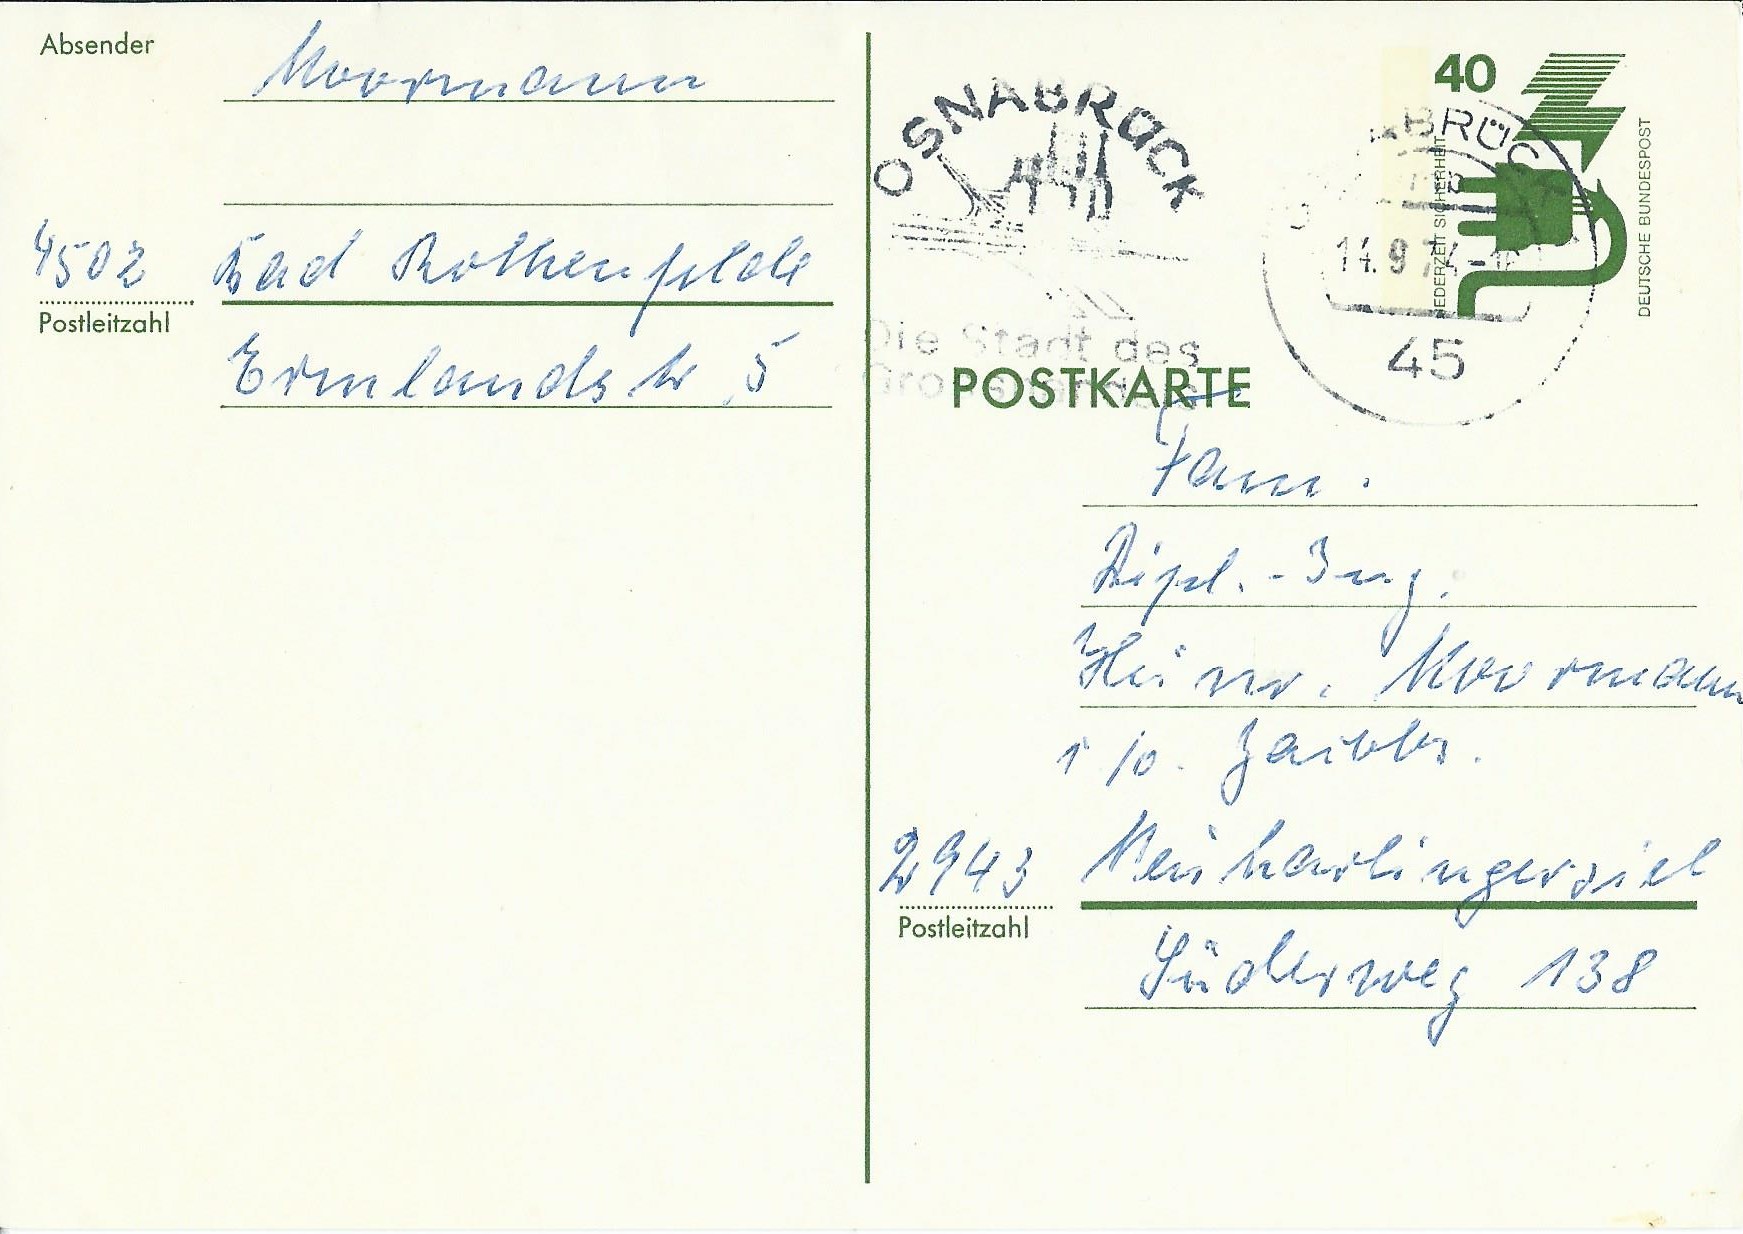 Absender
Moormann
4502 Bad Rothenfelde
Postleitzahl
Ermlandstr 5
OSNABRÜCK
Die Stadt des
40
JEDERZEIT SICHERHEIT
DEUTSCHE BUNDESPOST
14.9.74
45
POSTKARTE
Fam.
Dipl.-Ing.
Heinr. Moormann
c/o.
2943 Neuharlingersiel
Postleitzahl
Süderweg 138